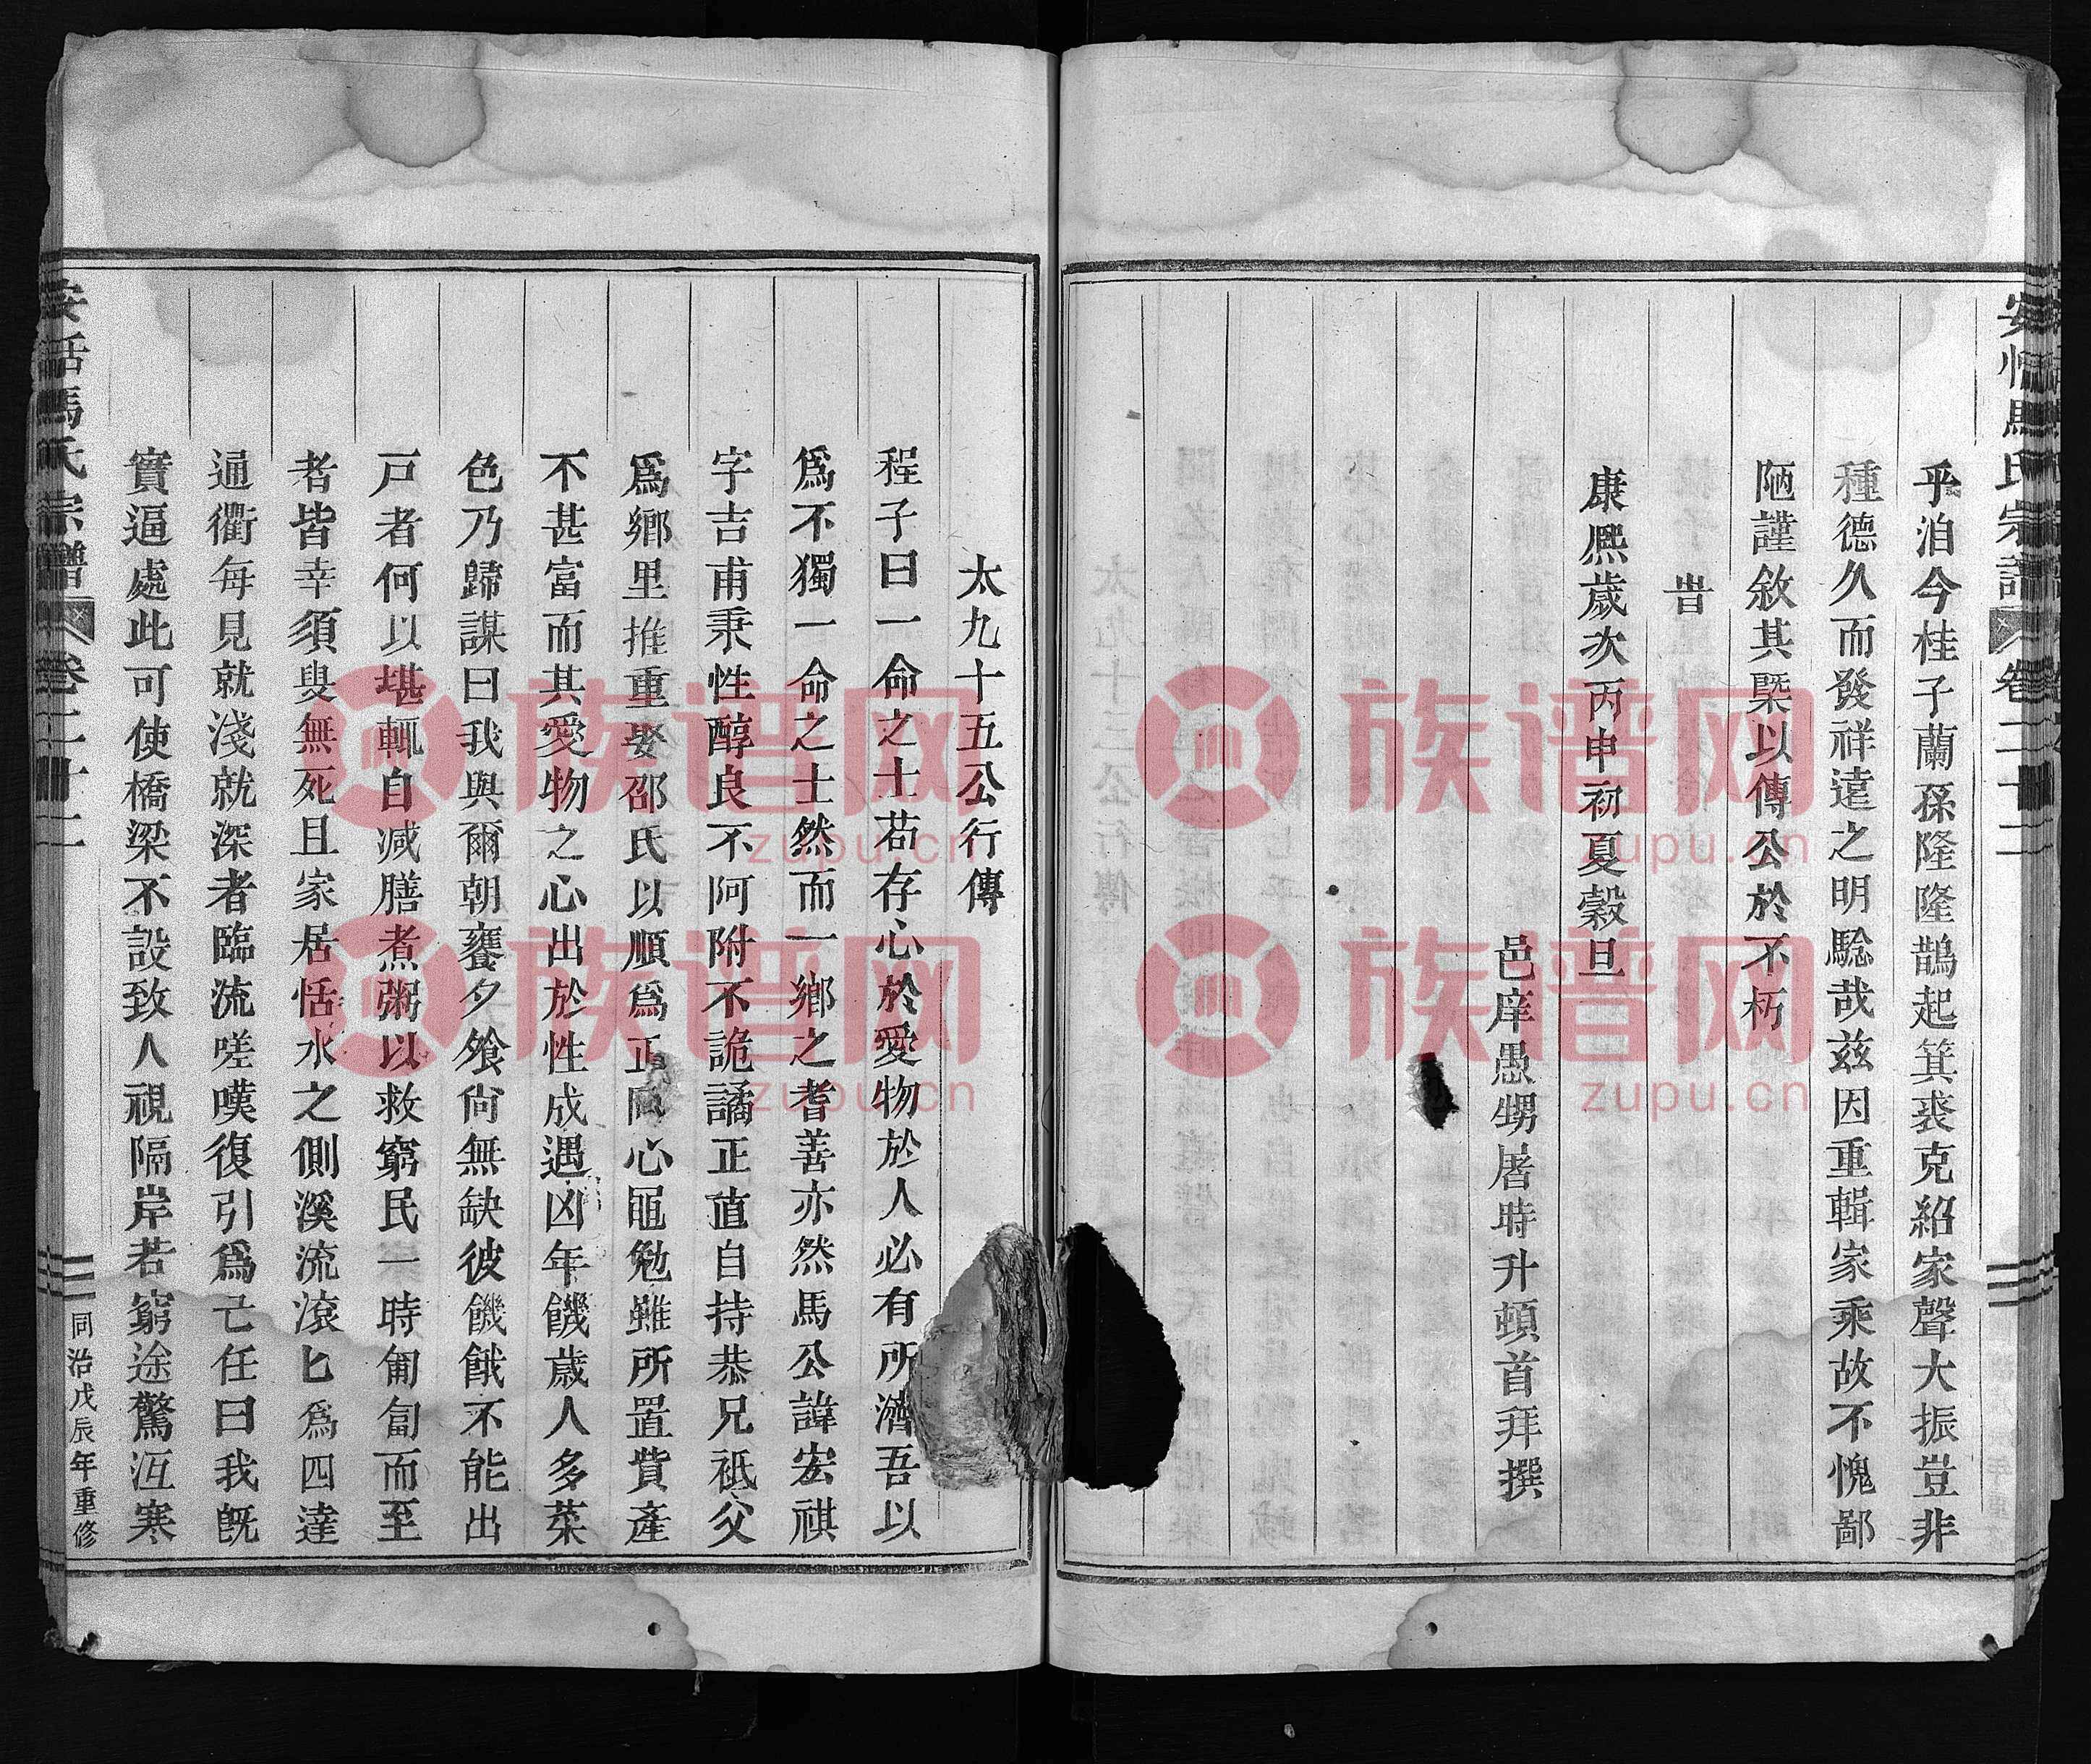 乎洎今桂子蘭孫隆隆鵲起箕裘克紹家聲大振豈非
種德久而發祥遠之明騐哉兹因重輯家乘故不愧鄙
陋謹敘其槩以傳公於不朽
旹
康熈歲次丙申初夏穀旦
邑庠愚甥屠時升頓首拜撰
太九十五公行傳
程子曰一命之士苟存心於愛物於人必有所濟吾以
爲不獨一命之士然而一鄉之耆善亦然馬公諱宏祺
字吉甫秉性醇良不阿附不詭譎正直自持恭兄祗父
爲鄉里推重娶邵氏以順爲正同心黽勉雖所置貲產
不甚富而其愛物之心出於性成遇凶年饑歲人多菜
色乃歸謀曰我與爾朝饔夕飧尙無缺彼饑餓不能出
戸者何以堪輒自减膳煮粥以救窮民一時匍匐而至
者皆幸須臾無死且家居恬水之側溪流滾匕爲四達
通衢每見就淺就深者臨流嗟嘆復引爲己任曰我旣
實逼處此可使橋梁不設致人視隔岸若窮途驚沍寒
安恬馬氏宗譜 卷二十二
同治戊辰年重修
族谱网
zupu.cn
族谱网
zupu.cn
族谱网
zupu.cn
族谱网
zupu.cn